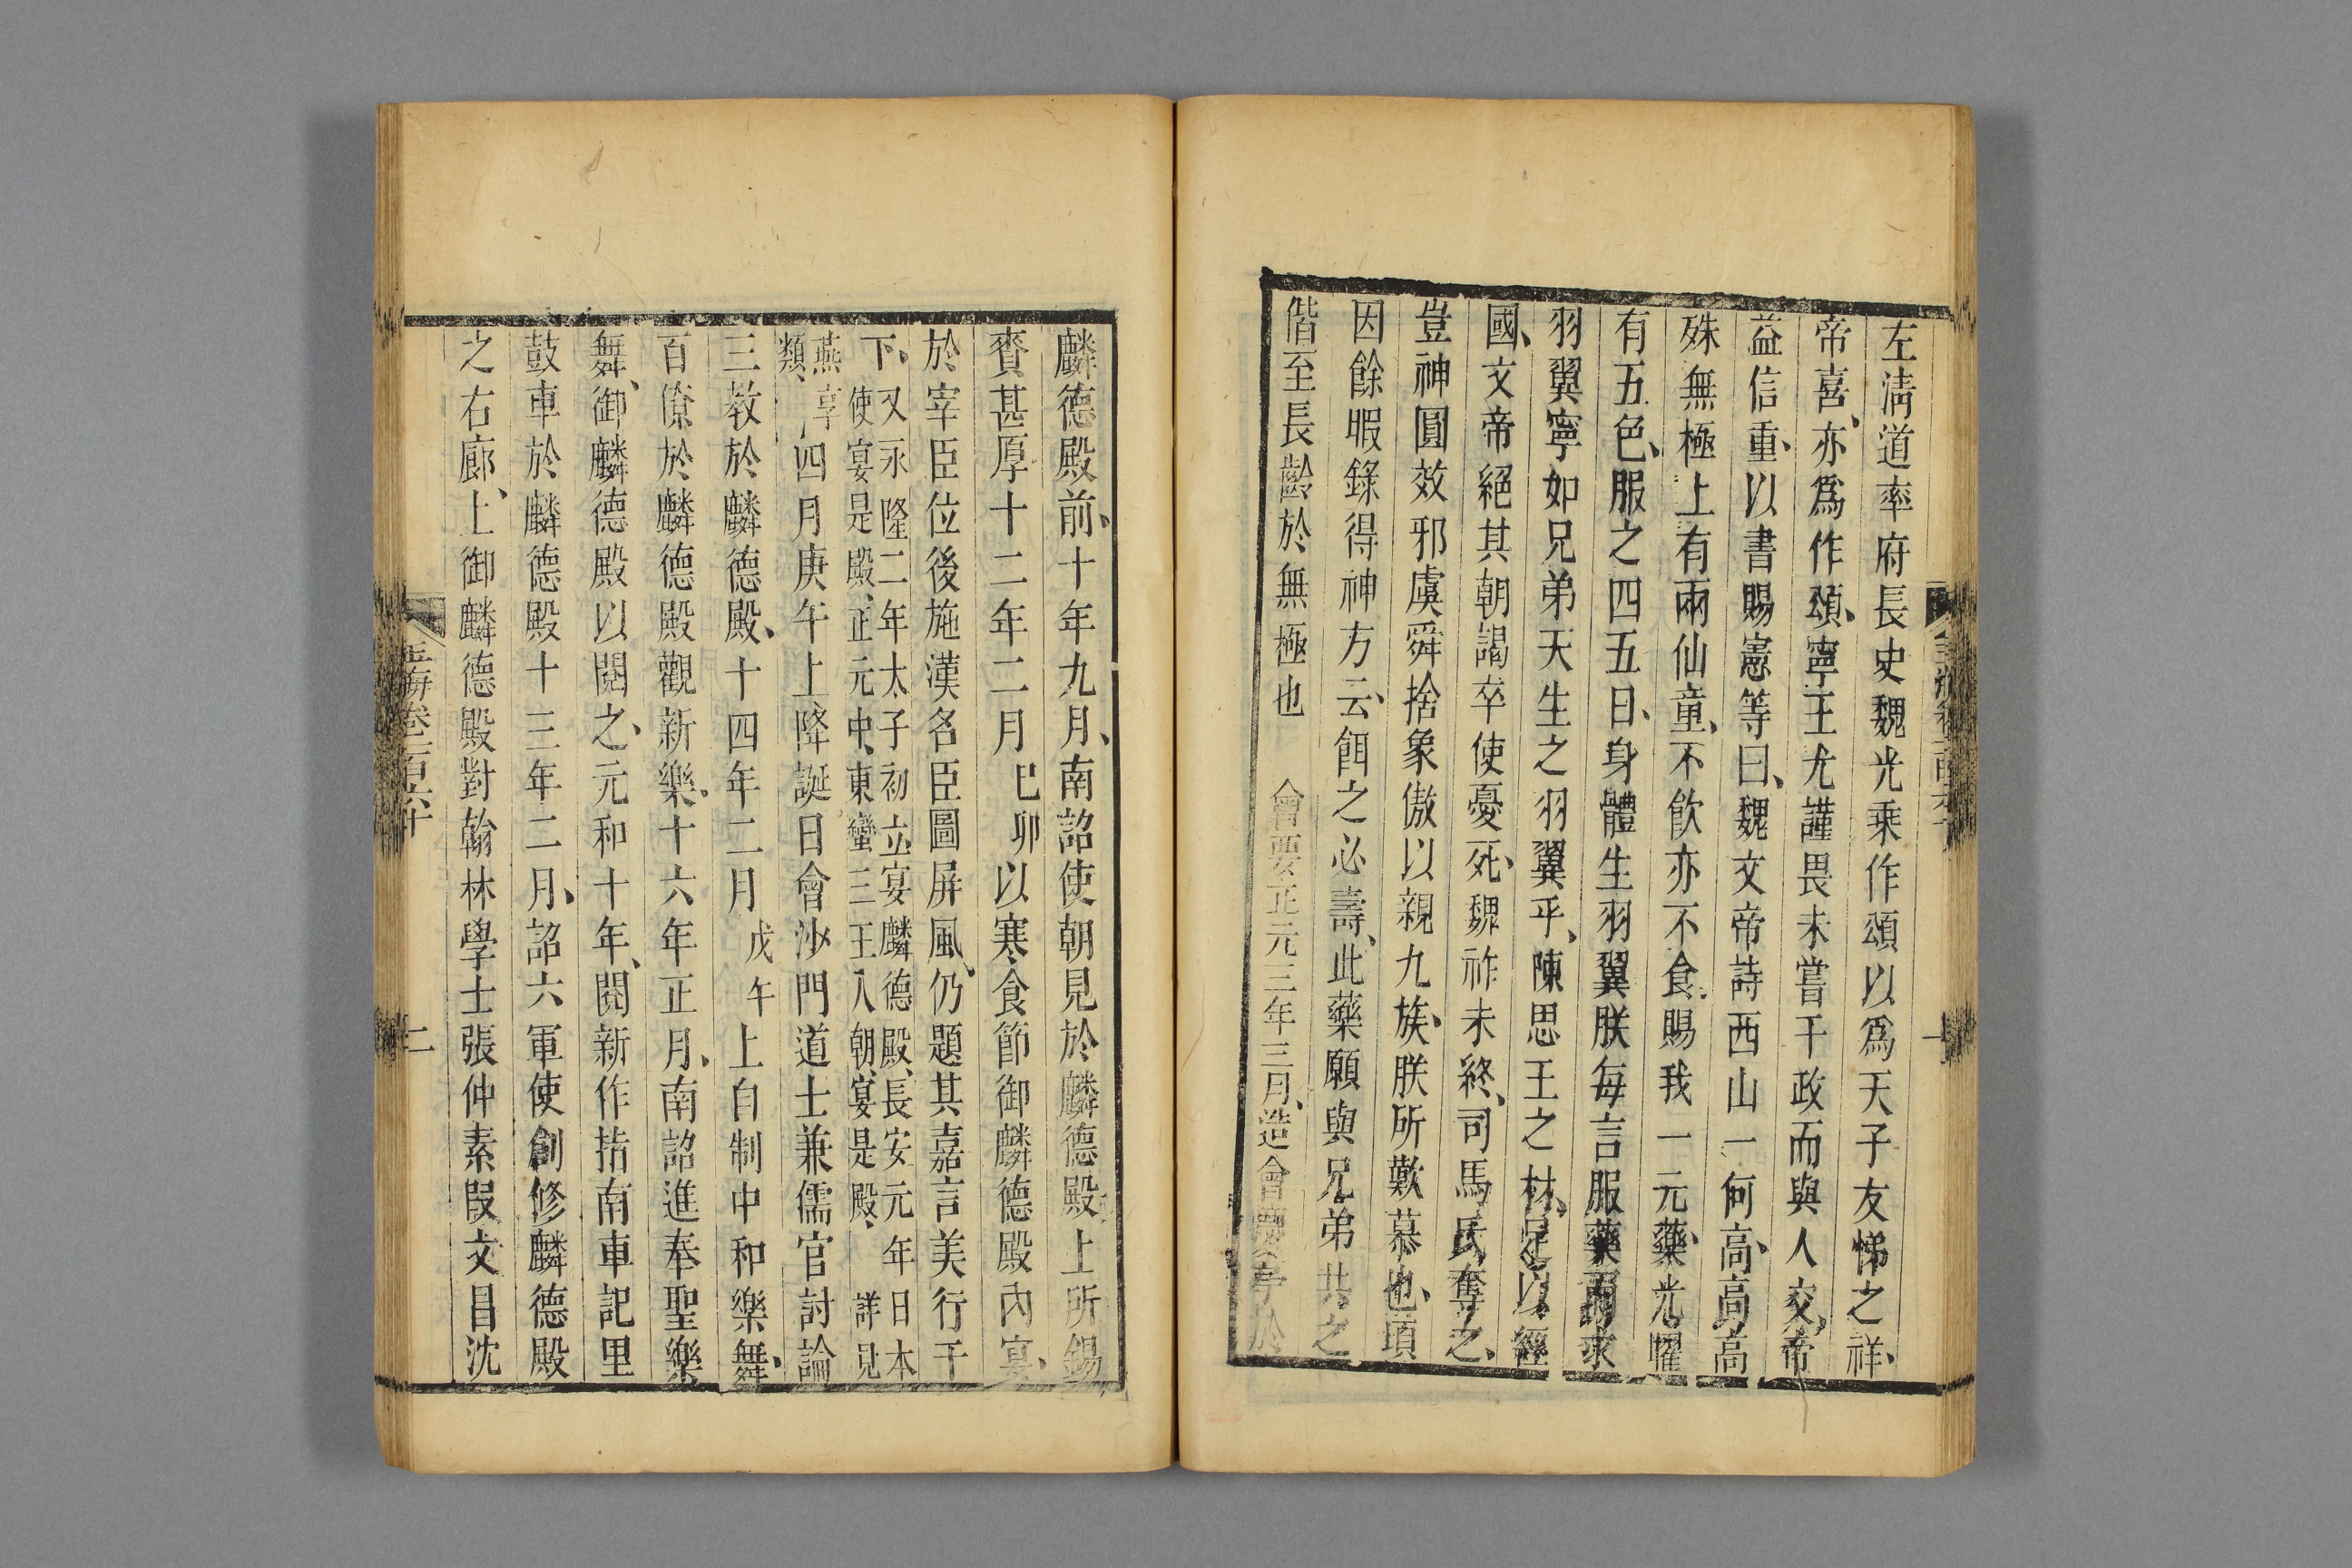 左清道率府長史魏光乘作頌以爲天子友悌之祥、
帝喜、亦爲作頌、寧王尤謹畏未嘗干政而與人交、帝
益信重、以書賜憲等曰、魏文帝詩西山一何高、高高
殊無極上有兩仙童、不飲亦不食、賜我一元藥、光耀
有五色、服之四五日、身體生羽翼朕每言服藥而求
羽翼寧如兄弟天生之羽翼乎、陳思王之材、足以經
國、文帝絕其朝謁卒使憂死、魏祚未終、司馬氏奪之、
豈神圓效邪虞舜捨象傲以親九族、朕所歎慕也、頃
因餘暇錄得神方云、餌之必壽、此藥願與兄弟共之
偕至長齡於無極也 會要正元三年三月、造會慶亭於
麟德殿前、十年九月、南詔使朝見於麟德殿上所錫
賚甚厚十二年二月己卯以寒食節御麟德殿內宴、
於宰臣位後施漢名臣圖屏風、仍題其嘉言美行于
下、又永隆二年太子初立宴麟德殿、長安元年日本
使宴是殿、正元中、東蠻三王入朝、宴是殿、詳見
燕享
類、四月庚午上降誕日會沙門道士兼儒官討論
三教於麟德殿、十四年二月戊午上自制中和樂舞、
百僚於麟德殿觀新樂、十六年正月、南詔進奉聖樂
舞、御麟德殿以閱之、元和十年、閱新作指南車記里
鼓車於麟德殿十三年二月、詔六軍使創修麟德殿
之右廊、上御麟德殿對翰林學士張仲素段文昌沈
玉海卷一百六十
二